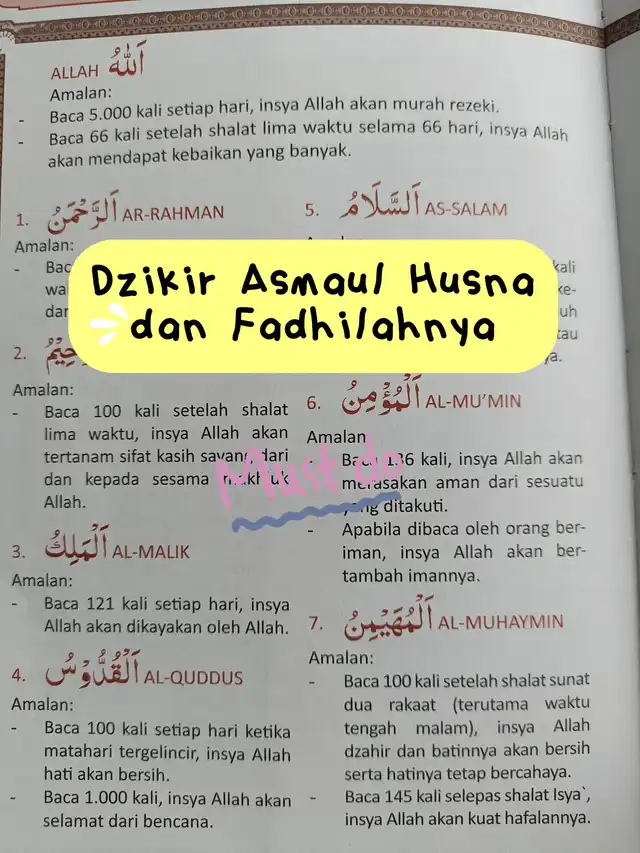 ALLAH اَللّٰهُ
Amalan:
- Baca 5.000 kali setiap hari, insya Allah akan murah rezeki.
- Baca 66 kali setelah shalat lima waktu selama 66 hari, insya Allah
akan mendapat kebaikan yang banyak.
1. اَلرَّحْمٰنُ AR-RAHMAN
Amalan:
Dzikir Asmaul Husna
dan Fadhilahnya
2.
Amalan:
- Baca 100 kali setelah shalat
lima waktu, insya Allah akan
tertanam sifat kasih sayang dari
dan kepada sesama makhluk
Allah.
Must do
3. اَلْمَلِكُ AL-MALIK
Amalan:
- Baca 121 kali setiap hari, insya
Allah akan dikayakan oleh Allah.
4. اَلْقُدُّوْسُ AL-QUDDUS
Amalan:
- Baca 100 kali setiap hari ketika
matahari tergelincir, insya Allah
hati akan bersih.
- Baca 1.000 kali, insya Allah akan
selamat dari bencana.
5. اَلسَّلَامُ AS-SALAM
kali
6. اَلْمُؤْمِنُ AL-MU’MIN
Amalan
Baca 36 kali, insya Allah akan
merasakan aman dari sesuatu
yang ditakuti.
- Apabila dibaca oleh orang ber-
iman, insya Allah akan ber-
tambah imannya.
7. اَلْمُهَيْمِنُ AL-MUHAYMIN
Amalan:
- Baca 100 kali setelah shalat sunat
dua rakaat (terutama waktu
tengah malam), insya Allah
dzahir dan batinnya akan bersih
serta hatinya tetap bercahaya.
- Baca 145 kali selepas shalat Isya`,
insya Allah akan kuat hafalannya.